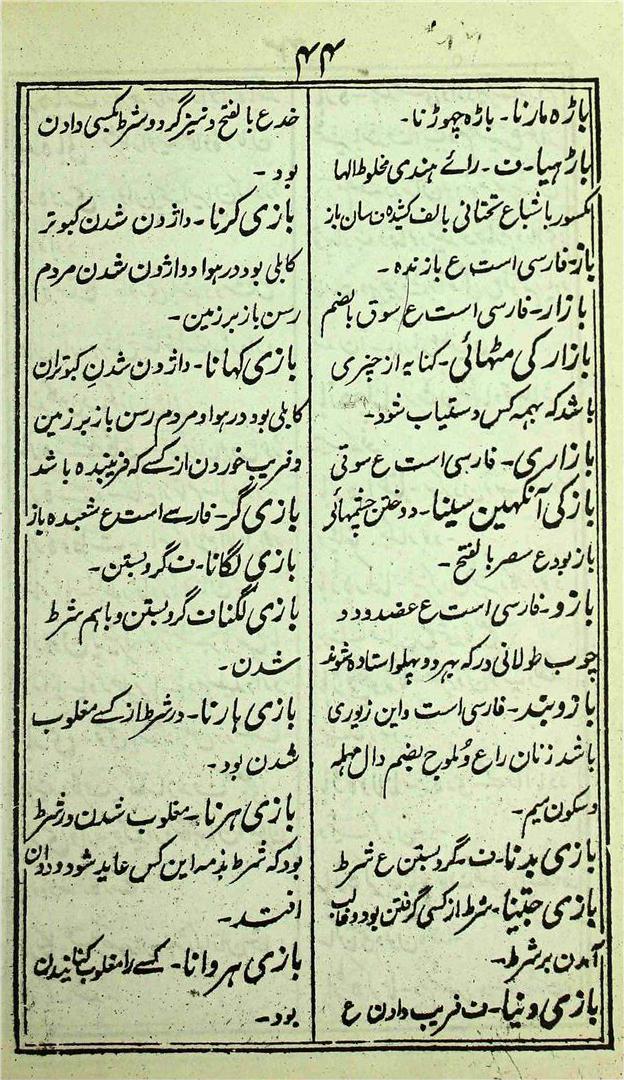 ۴۴
باڑہ مارنا۔ باڑہ چھوڑنا۔
باڑھیا۔ ف۔ رائے ہندی مخلوط الہا
مکسور باشباع تحتانی بالف کشیدہ ف سان باز
باز۔ فارسی است ع بازندہ۔
بازار۔ فارسی است ع سوق بالضم
بازار کی مٹھائی۔ کنایہ از چیزی
باشد کہ بہمہ کس دستیاب شود۔
بازاری۔ فارسی است ع سوقی
باز کی آنکھین سینا۔ دوختن چشمہائے
باز بود ع بالفتح۔
بازو۔ فارسی است ع عضد و دو
چوب طولانی در کہ بہر دو پہلو استادہ شوند
بازوبند۔ فارسی است و این زیوری
باشد زنان را ع دُملوج بضم دال مہملہ
و سکون میم۔
بازی بدنا۔ ف۔ گرو بستن ع شرط
بازی جتینا۔ شرط از کسی گرفتن بود و غالب
آمدن بر شرط۔
بازی دینا۔ ف فریب دادن ع
خدع بالفتح و نیز گرو و شرط بکسی دادن
بود۔
بازی کرنا۔ واژدن شدن کبوتر
کابلی بود در ہوا و واژدن شدن مردم
رسن باز بر زمین۔
بازی کہانا۔ واژدن شدن کبوتران
کابلی بود در ہوا و مردم رسن باز بر زمین
و فریب خوردن از کسے کہ فریبندہ باشد
بازی گر۔ فارسے است ع شعبدہ باز
بازی لگانا۔ ف گرو بستن۔
بازی لگنا ف گرو بستن و باہم شرط
شدن۔
بازی ہارنا۔ در شرط از کسے مغلوب
شدن بود۔
بازی ہرنا۔ مغلوب شدن در شرط
بود کہ شرط بذمہ این کس عاید شود و
افتد۔
بازی ہروانا۔ کسے را مغلوب کنانیدن
بود۔